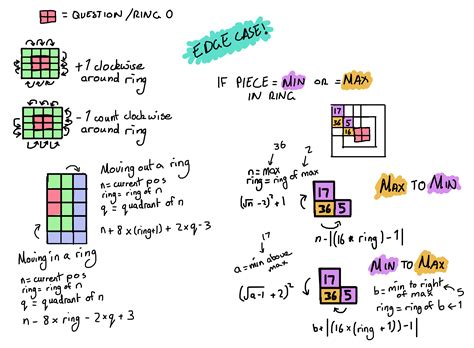 = QUESTION / RING 0
+1 clockwise
around ring
-1 count clockwise
around ring
Moving out a ring
n = current pos
ring = ring of n
q = quadrant of n
n + 8 x (ring+1) + 2 x q - 3
Moving in a ring
n = current pos
ring = ring of n
q = quadrant of n
n - 8 x ring - 2 x q + 3
EDGE CASE!
IF PIECE = MIN OR = MAX
IN RING
17
36 5
16
36 2
n = max
ring = ring of max
(√n - 2)² + 1
17
36 5
MAX TO MIN
n - |(16 x ring) - 1|
17
a = min above
max
(√a-1 + 2)²
17
36 5
MIN TO MAX
b = min to right
of max
5
ring = ring of b
1
b + |(16 x (ring + 1)) - 1|